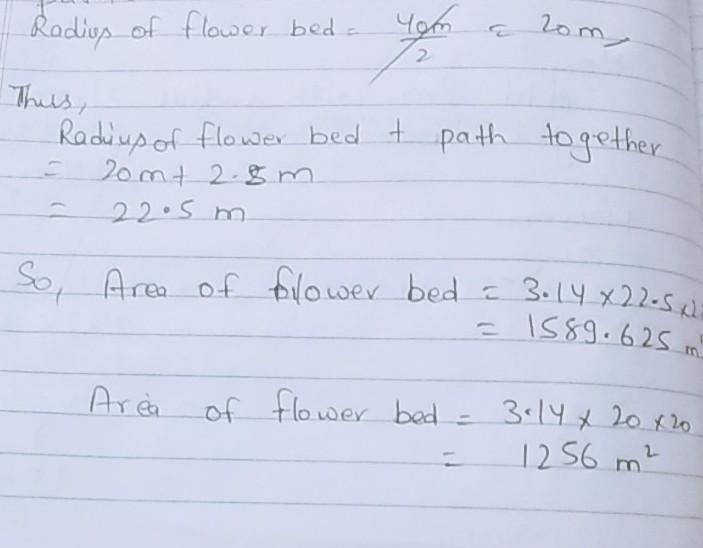 Radius of flower bed = 40m/2 = 20m
Thus,
Radius of flower bed + path together
= 20m + 2.5 m
= 22.5 m
So, Area of flower bed = 3.14 x 22.5 x
= 1589.625 m
Area of flower bed = 3.14 x 20 x 20
= 1256 m²